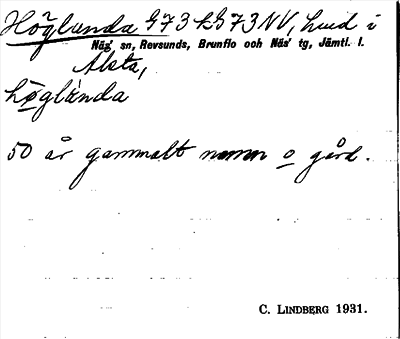 Höglunda G73 LG73NV, hmd i
Näg' sn, Revsunds, Brunflo och Näs' tg, Jämtl. l.
Alsta,
höglànda
50 år gammalt namn o gård.
C. LINDBERG 1931.